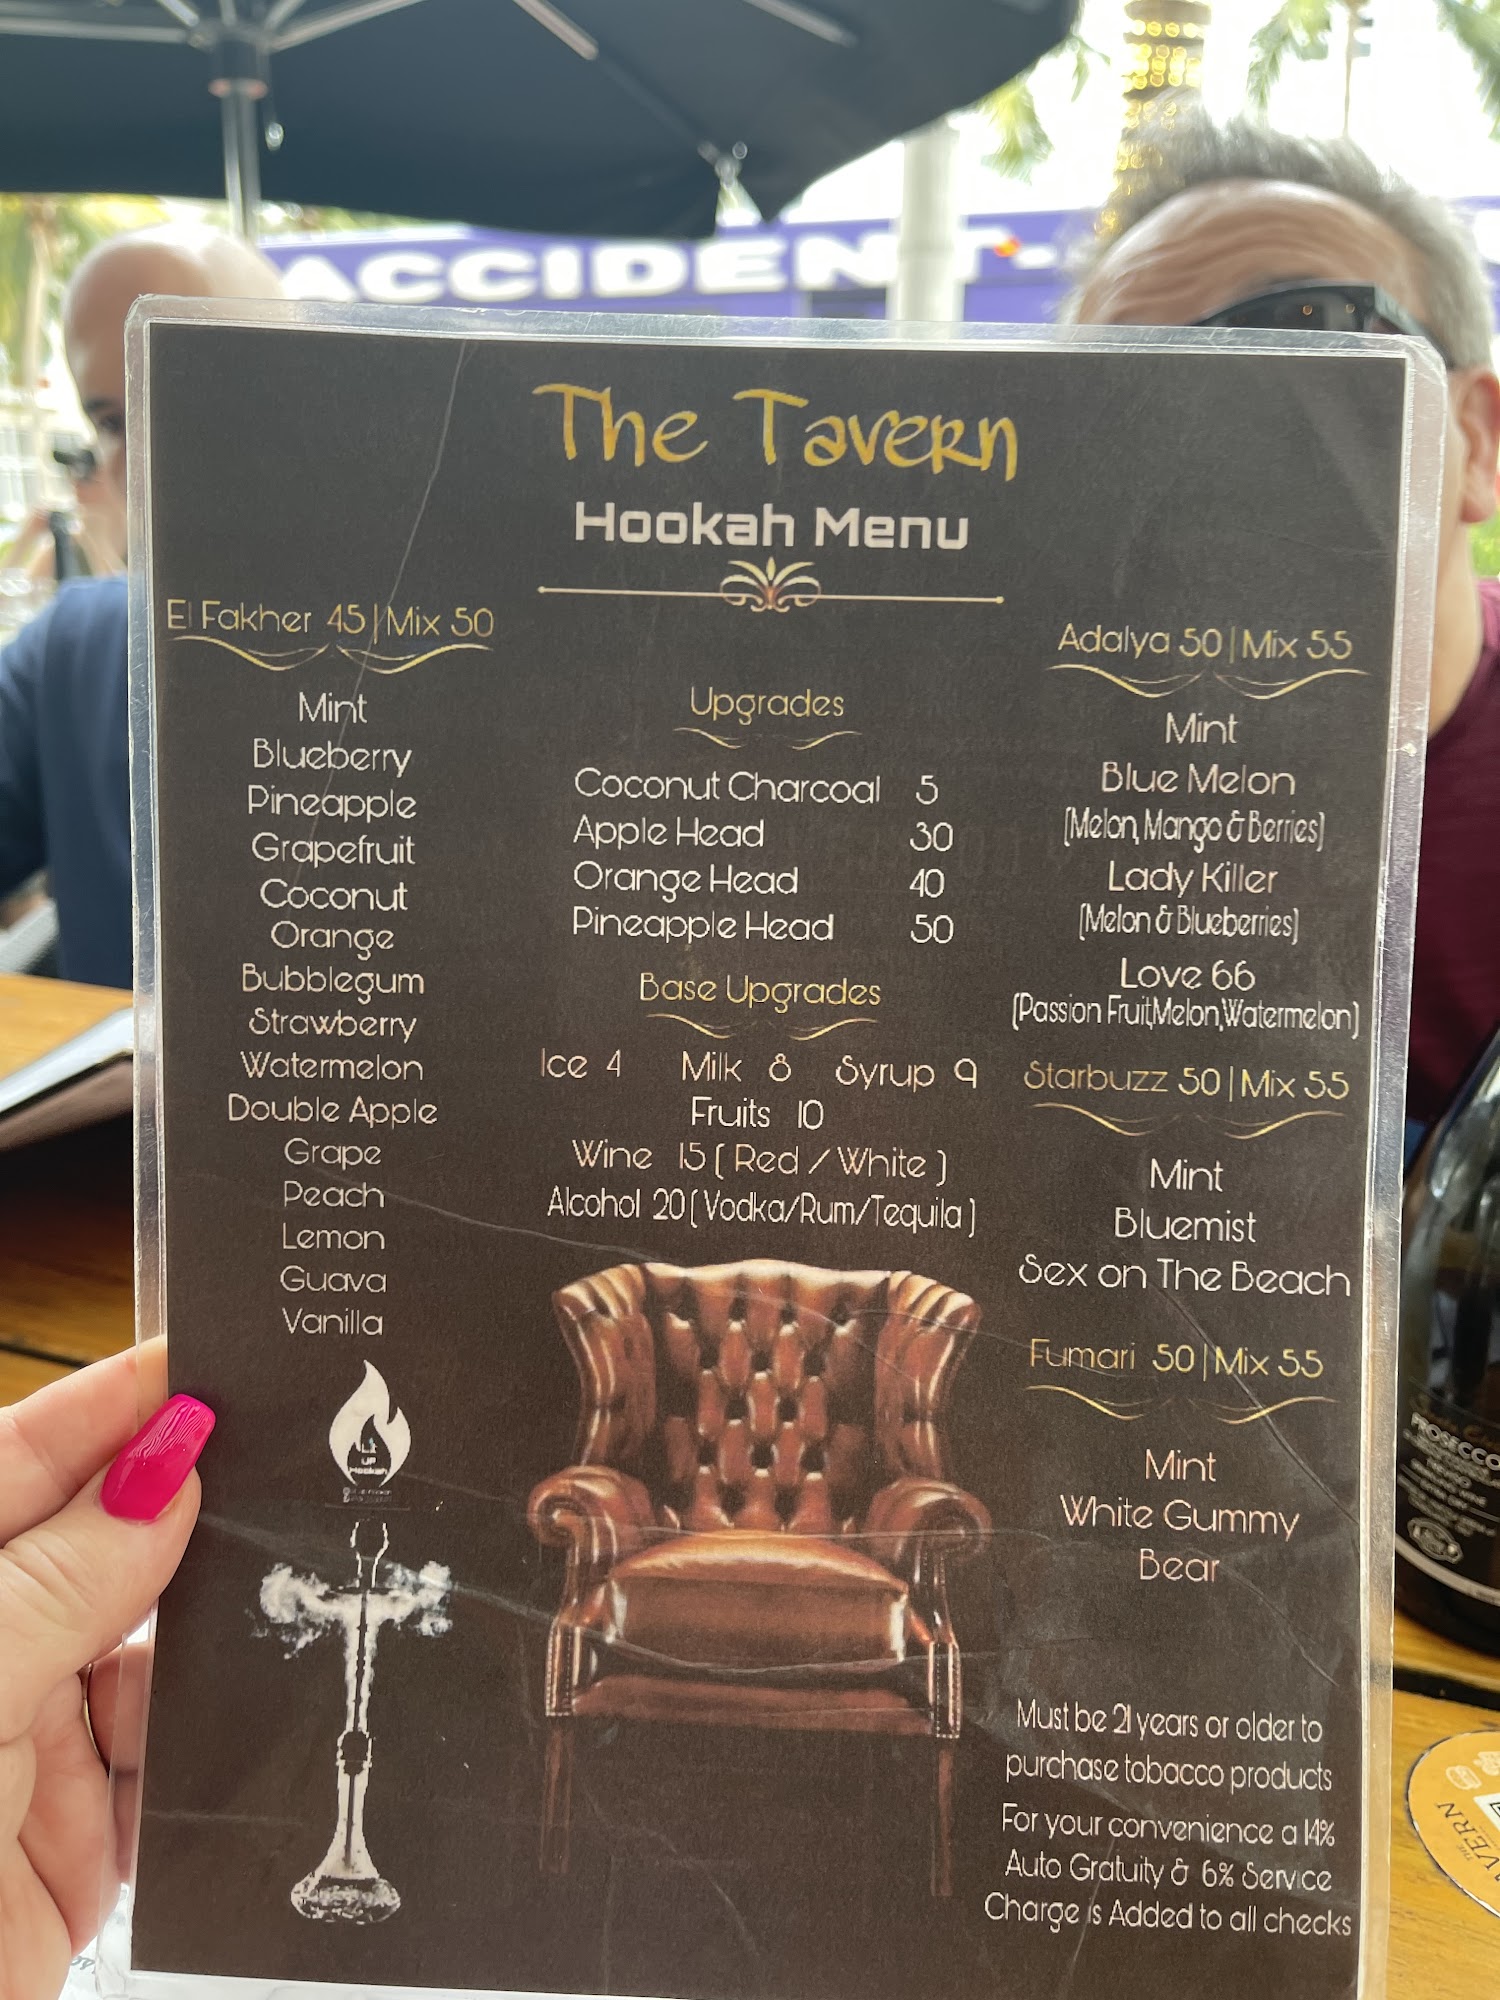 ACCIDENT.
The Tavern
Hookah Menu
El Fakher 45 | Mix 50
Mint
Blueberry
Pineapple
Grapefruit
Coconut
Orange
Bubblegum
Strawberry
Watermelon
Double Apple
Grape
Peach
Lemon
Guava
Vanilla
UP
Hookah
Upgrades
Coconut Charcoal 5
Apple Head 30
Orange Head 40
Pineapple Head 50
Base Upgrades
Ice 4 Milk 8 Syrup 9
Fruits 10
Wine 15 ( Red / White )
Alcohol 20 ( Vodka/Rum/Tequila )
Adalya 50 | Mix 55
Mint
Blue Melon
(Melon, Mango & Berries)
Lady Killer
(Melon & Blueberries)
Love 66
(Passion Fruit,Melon,Watermelon)
Starbuzz 50 | Mix 55
Mint
Bluemist
Sex on The Beach
Fumari 50 | Mix 55
Mint
White Gummy
Bear
Must be 21 years or older to
purchase tobacco products
For your convenience a 14%
Auto Gratuity & 6% Service
Charge is Added to all checks
PROSECCO